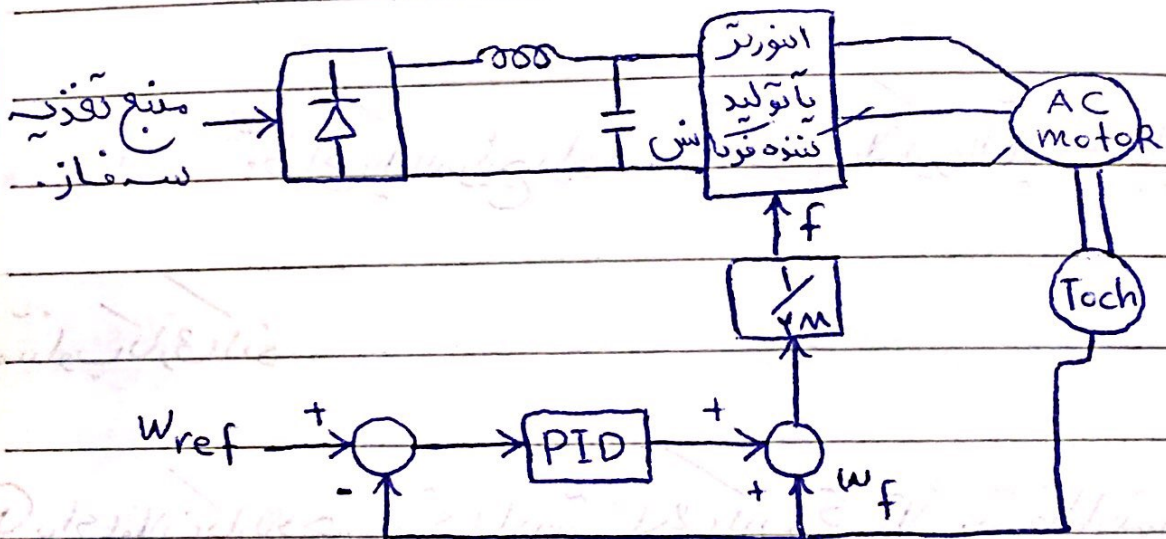 منبع تغذیه
سه فاز.
اینورتر
با تولید
کننده فرکانس
AC
motoR
f
۱/۲π
Toch
Wref
+
-
PID
+
+
wf